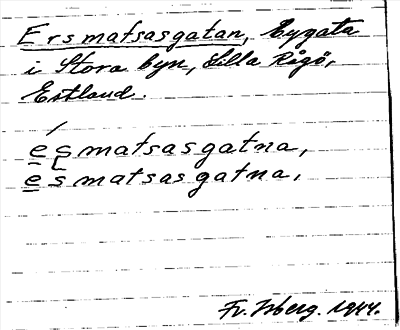 Ersmatsasgatan, bygata
i Stora byn, Lilla Rågö,
Estland.
éşmatsasgatna,
eşmatsasgatna,
Fr. Isberg. 1944.